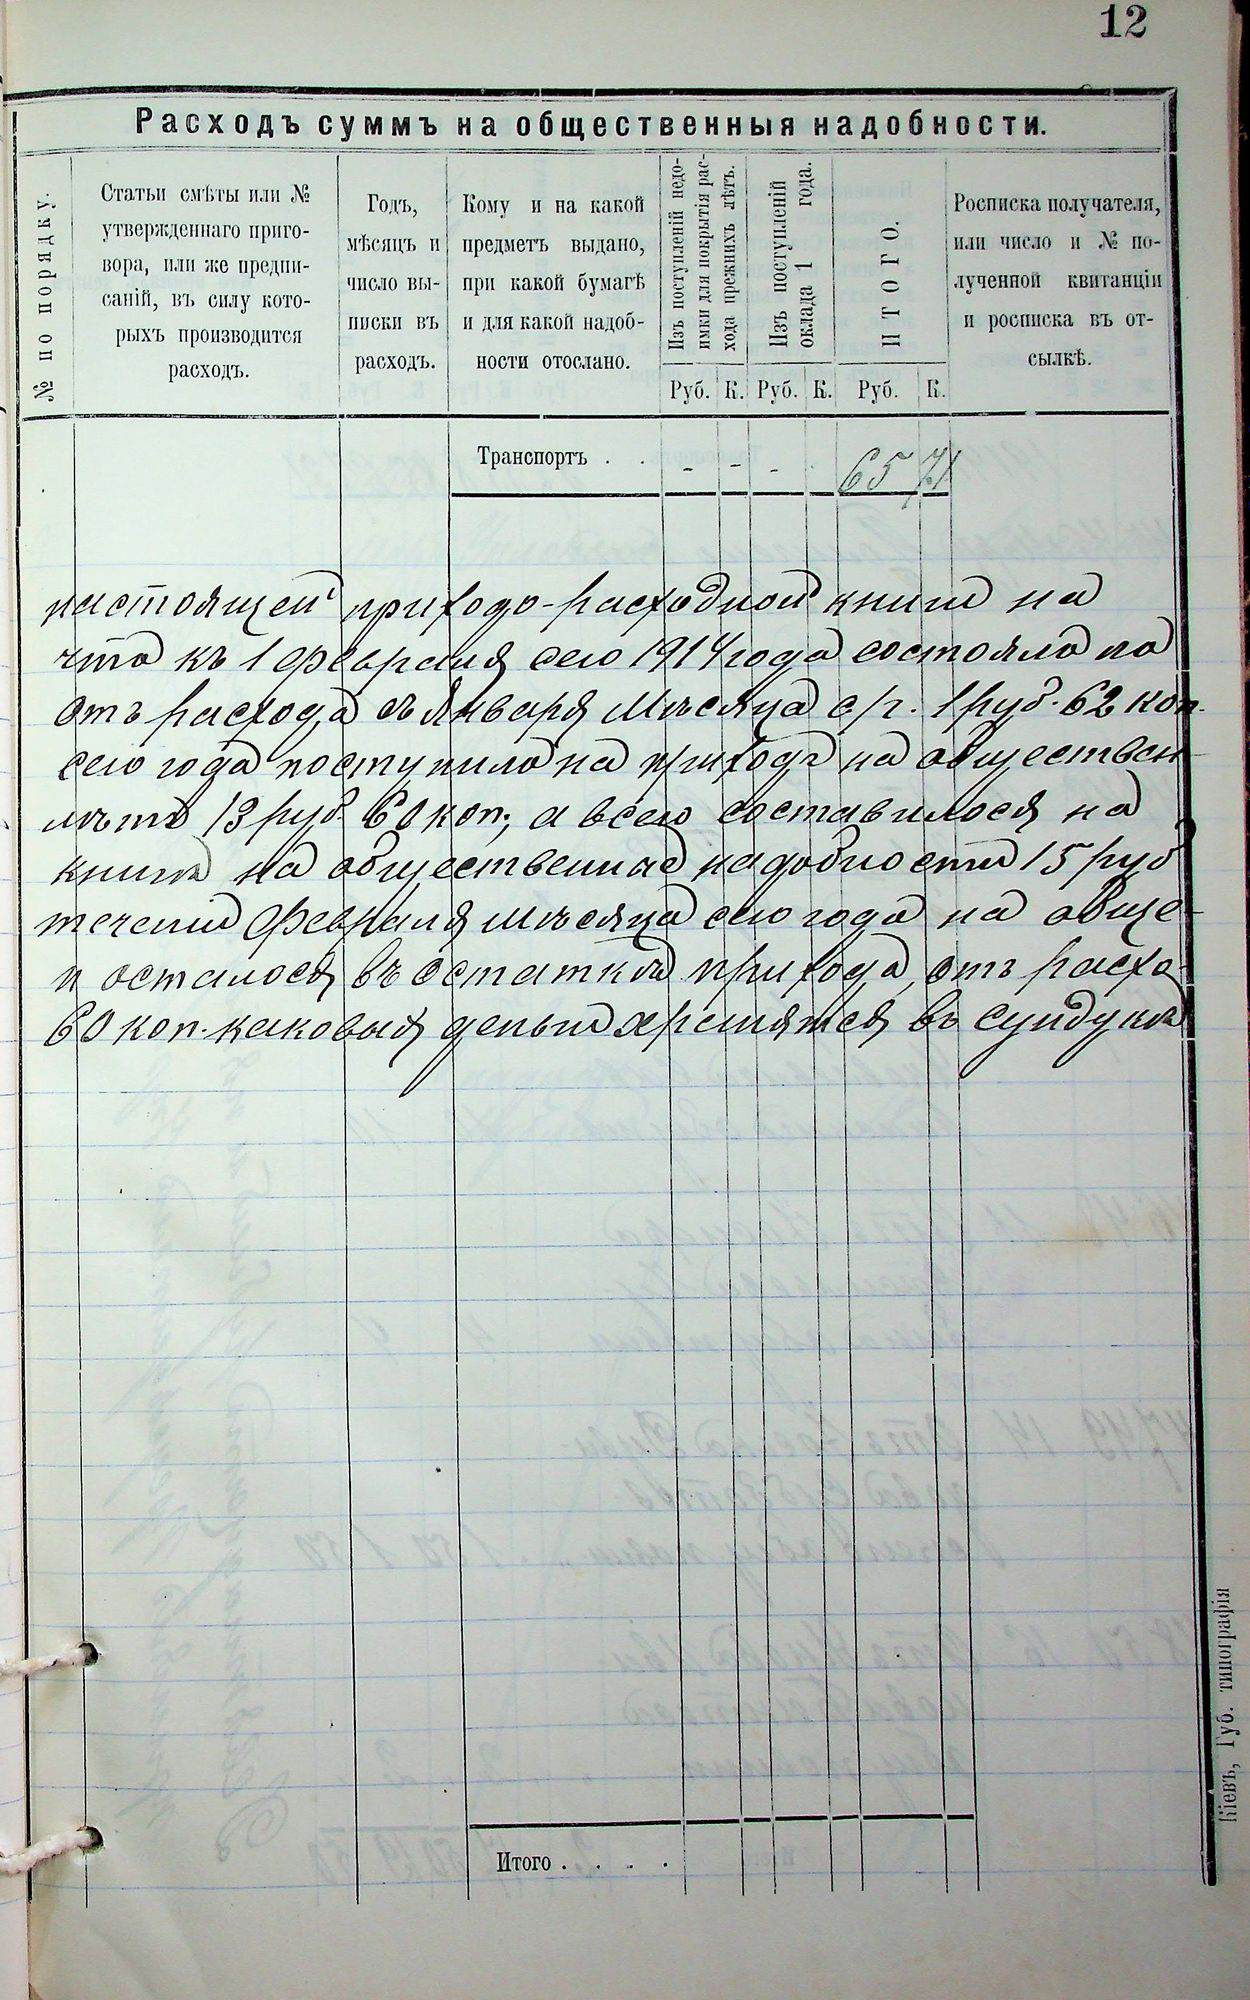 12
Расходъ суммъ на общественныя надобности.
№ по порядку.
Статьи смѣты или №
утвержденнаго приго-
вора, или же предпи-
саній, въ силу кото-
рыхъ производится
расходъ.
Годъ,
мѣсяцъ и
число вы-
писки въ
расходъ.
Кому и на какой
предметъ выдано,
при какой бумагѣ
и для какой надоб-
ности отослано.
Изъ поступленій недо-
имки для покрытія рас-
хода прежнихъ лѣтъ.
Изъ поступленій
оклада 1 года.
ИТОГО.
Росписка получателя,
или число и № по-
лученной квитанціи
и росписка въ от-
сылкѣ.
Руб. К. Руб. К. Руб. К.
Транспортъ . . - - - 65 71
настоящей приходо-расходной книги на
что къ 1 февраля сего 1914 года состояло на
отъ расхода съ Января мѣсяца с/г. 1 руб. 62 коп.
сего года поступило на приходъ на обществен-
13 руб. 60 коп., а всего составилося на
книга на общественные надобности 15 руб
течении Февраля мѣсяца сего года на обще-
и осталося въ остаткѣ прихода отъ расхо-
60 коп. каковыя деньги хранятся въ сундукѣ
Итого . . . .
Кіевъ, Губ. типографія